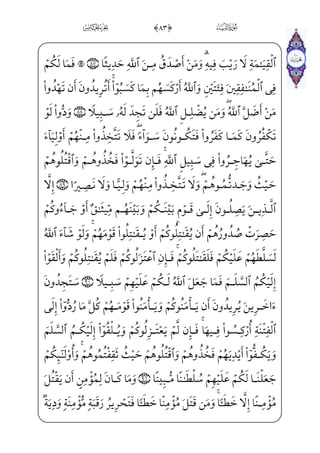 سُورَةُ النِّسَاءِ ﴿٨٣﴾ الجُزْءُ الخَامِسُ
ٱلْقِيَـٰمَةِ لَا رَيْبَ فِيهِ ۗ وَمَنْ أَصْدَقُ مِنَ ٱللَّهِ حَدِيثًا ٨٧ ۞ فَمَا لَكُمْ
فِى ٱلْمُنَـٰفِقِينَ فِئَتَيْنِ وَٱللَّهُ أَرْكَسَهُم بِمَا كَسَبُوٓا۟ ۚ أَتُرِيدُونَ أَن تَهْدُوا۟
مَنْ أَضَلَّ ٱللَّهُ ۖ وَمَن يُضْلِلِ ٱللَّهُ فَلَن تَجِدَ لَهُۥ سَبِيلًا ٨٨ وَدُّوا۟ لَوْ
تَكْفُرُونَ كَمَا كَفَرُوا۟ فَتَكُونُونَ سَوَآءً ۖ فَلَا تَتَّخِذُوا۟ مِنْهُمْ أَوْلِيَآءَ
حَتَّىٰ يُهَاجِرُوا۟ فِى سَبِيلِ ٱللَّهِ ۚ فَإِن تَوَلَّوْا۟ فَخُذُوهُمْ وَٱقْتُلُوهُمْ
حَيْثُ وَجَدتُّمُوهُمْ ۖ وَلَا تَتَّخِذُوا۟ مِنْهُمْ وَلِيًّا وَلَا نَصِيرًا ٨٩ إِلَّا
ٱلَّذِينَ يَصِلُونَ إِلَىٰ قَوْمٍۭ بَيْنَكُمْ وَبَيْنَهُم مِّيثَـٰقٌ أَوْ جَآءُوكُمْ
حَصِرَتْ صُدُورُهُمْ أَن يُقَـٰتِلُوكُمْ أَوْ يُقَـٰتِلُوا۟ قَوْمَهُمْ ۚ وَلَوْ شَآءَ ٱللَّهُ
لَسَلَّطَهُمْ عَلَيْكُمْ فَلَقَـٰتَلُوكُمْ ۚ فَإِنِ ٱعْتَزَلُوكُمْ فَلَمْ يُقَـٰتِلُوكُمْ وَأَلْقَوْا۟
إِلَيْكُمُ ٱلسَّلَمَ فَمَا جَعَلَ ٱللَّهُ لَكُمْ عَلَيْهِمْ سَبِيلًا ٩٠ سَتَجِدُونَ
ءَاخَرِينَ يُرِيدُونَ أَن يَأْمَنُوكُمْ وَيَأْمَنُوا۟ قَوْمَهُمْ كُلَّ مَا رُدُّوٓا۟ إِلَى
ٱلْفِتْنَةِ أُرْكِسُوا۟ فِيهَا ۚ فَإِن لَّمْ يَعْتَزِلُوكُمْ وَيُلْقُوٓا۟ إِلَيْكُمُ ٱلسَّلَمَ
وَيَكُفُّوٓا۟ أَيْدِيَهُمْ فَخُذُوهُمْ وَٱقْتُلُوهُمْ حَيْثُ ثَقِفْتُمُوهُمْ ۚ وَأُو۟لَـٰٓئِكُمْ
جَعَلْنَا لَكُمْ عَلَيْهِمْ سُلْطَـٰنًا مُّبِينًا ٩١ وَمَا كَانَ لِمُؤْمِنٍ أَن يَقْتُلَ
مُؤْمِنًا إِلَّا خَطَـًٔا ۚ وَمَن قَتَلَ مُؤْمِنًا خَطَـًٔا فَتَحْرِيرُ رَقَبَةٍ مُّؤْمِنَةٍ وَدِيَةٌ